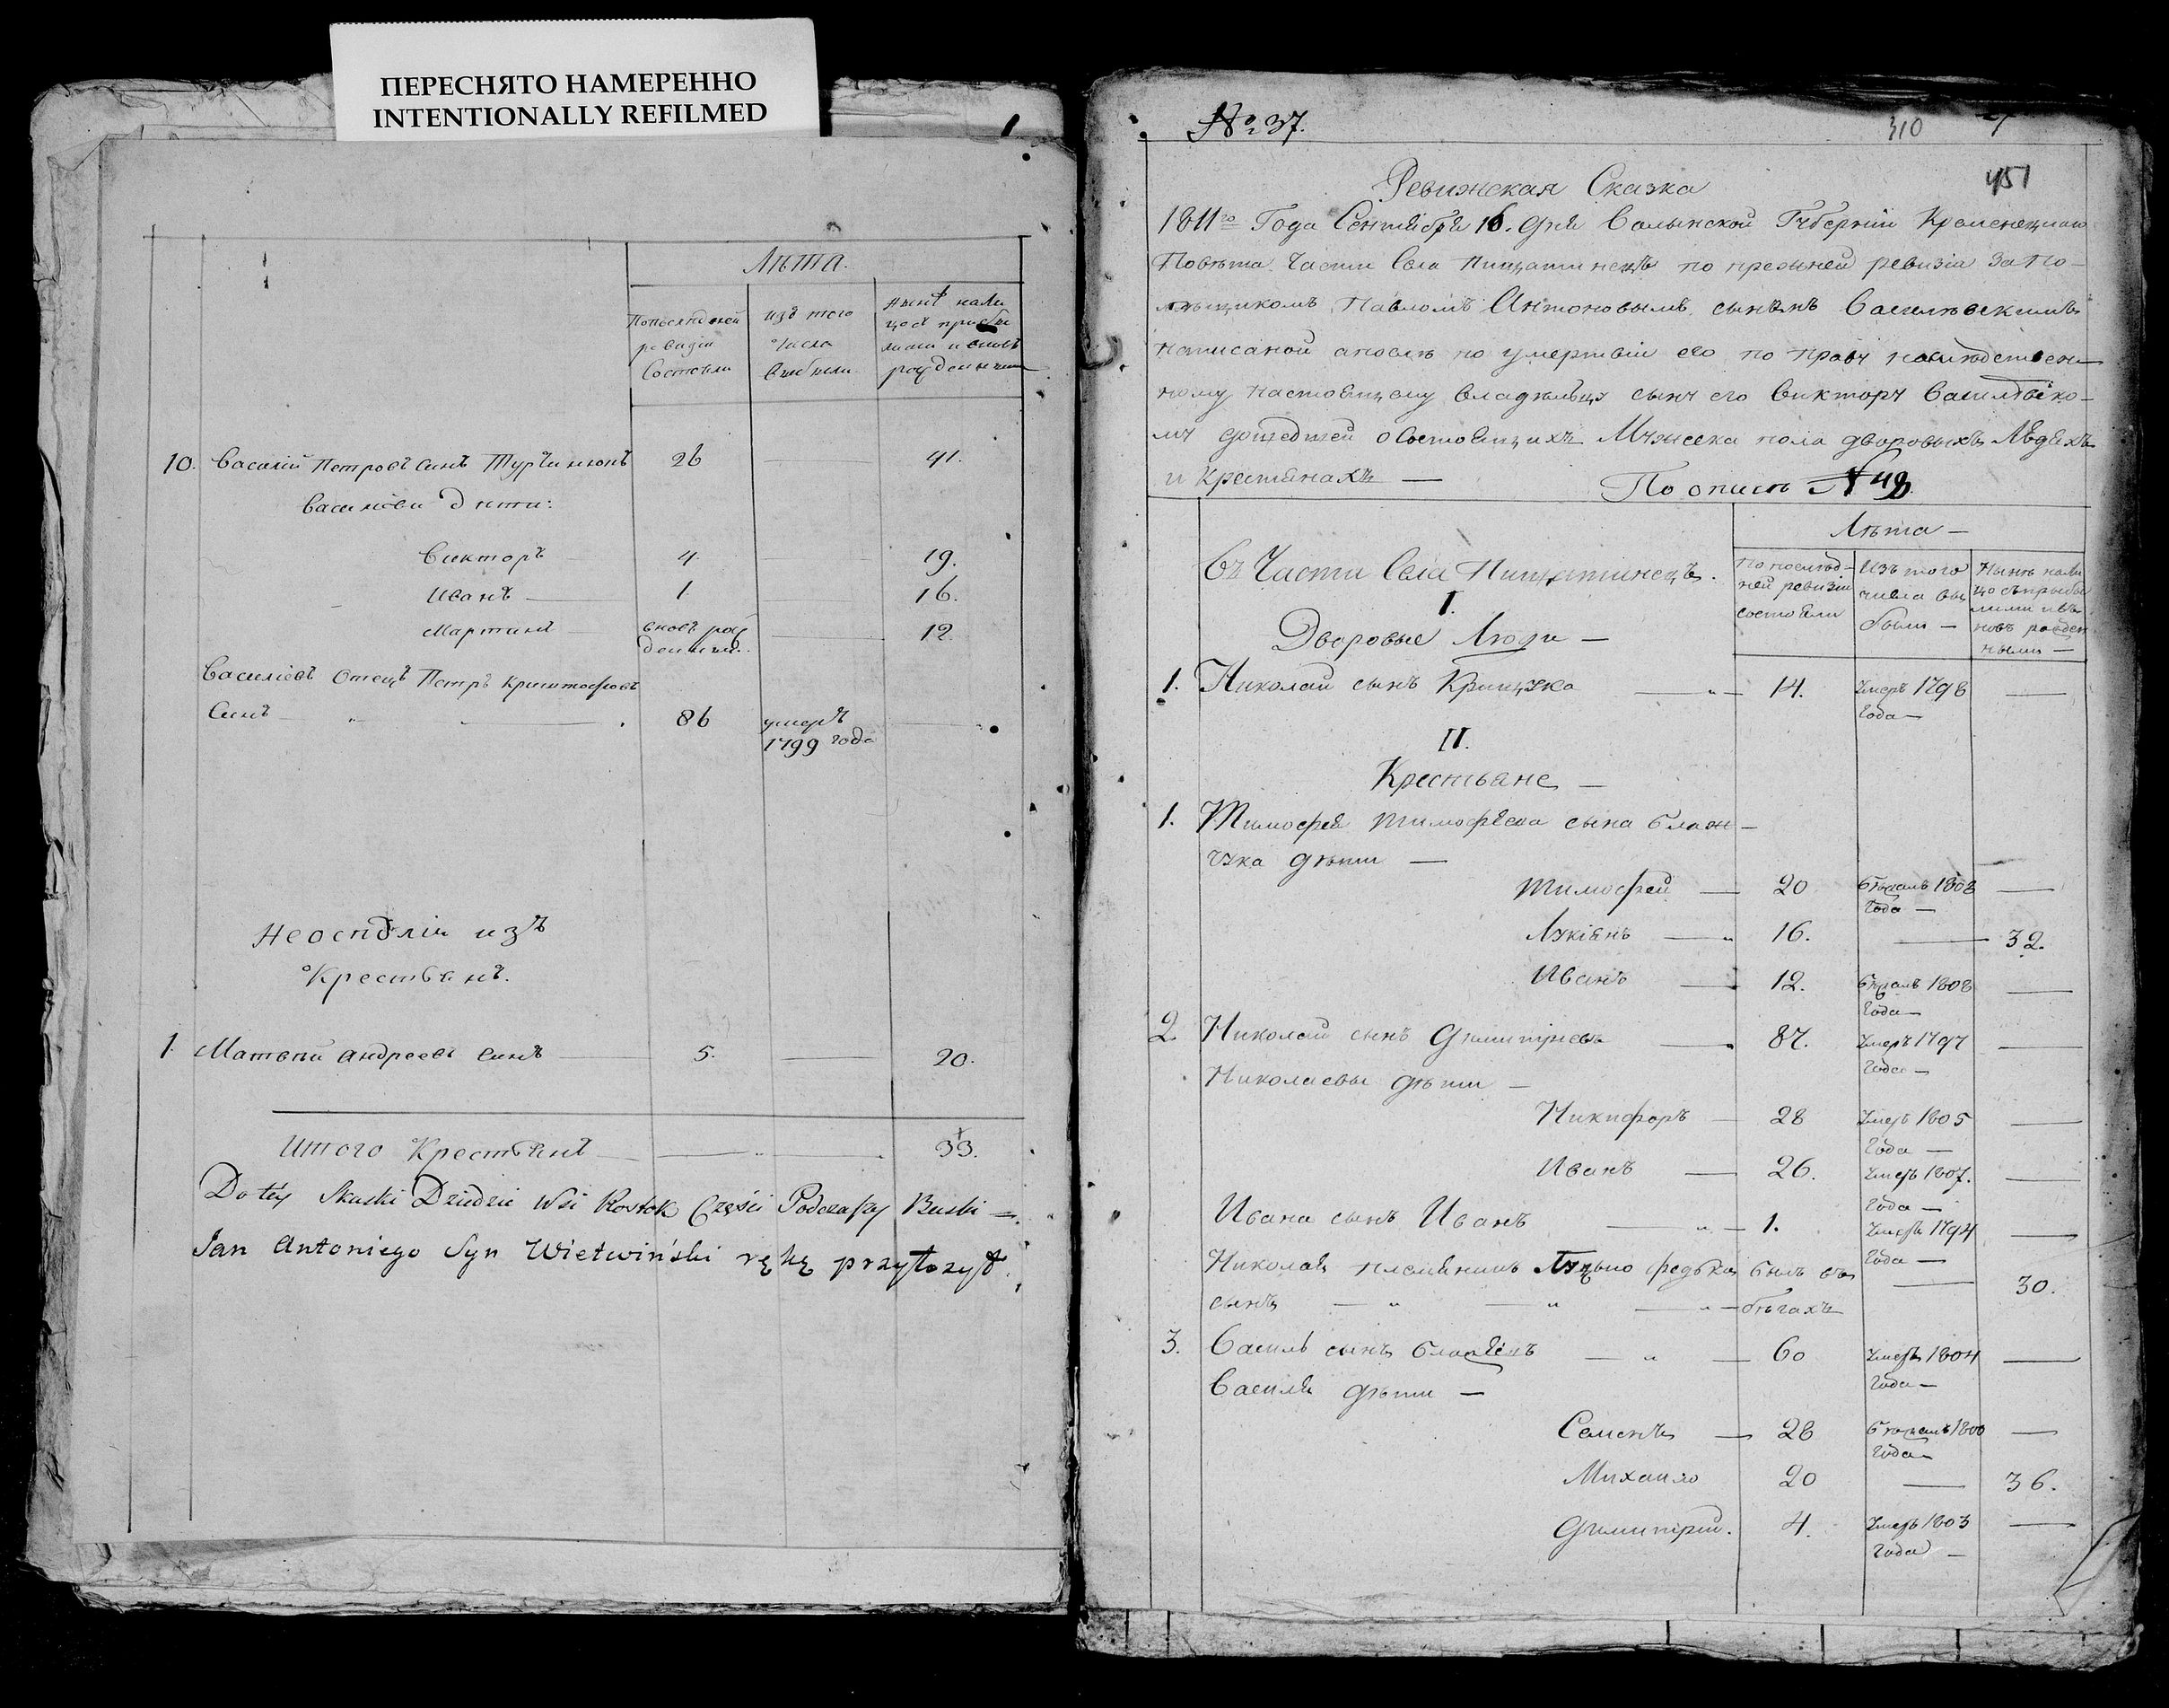 ПЕРЕСНЯТО НАМЕРЕННО
INTENTIONALLY REFILMED
Лѣта.
По последней ревизіи Состояли
изъ того Числа Выбыли
10. Василій Петровъ Синъ 26 — 41.
Василіеви Дѣти:
Викторъ 4. — 19.
Иванъ 1. — 16.
Мартинъ вновь рожденны. — 12.
Василіевъ Отецъ Петръ Криштофовъ
Синъ 86 умеръ 1799 года —
изъ
Крестьянъ.
1. Матвій Андреевъ Синъ 5. — 20.
Итого Крестьянъ — 33.
Do téy Skaski Dziedzic Wsi Rostok Części Podczaszy Buski =
Jan Antoniego Syn Wietwiński rękę przyłożył.
№ 37. 310
451
Ревижская Сказка
1811го Года Сентября 16. дня Волынской Губерніи Кременецкаго
Повѣта Части Села Пищатинецъ по прежней ревизіи За По-
мѣщикомъ Павломъ Антоновымъ сынѣмъ Василевскимъ
написаной апослѣ по умертвіи его по праву наслѣдствен-
ному настоящему владѣльцу сыну его Виктору Василевско-
му дошедшей о состоящихъ Мужеска пола дворовыхъ Людяхъ
и Крестянахъ —
По описи № 48.
Лѣта —
Въ Части Села Пищатинецъ.
По послѣд-
ней ревизіи
состояли
Изъ того
числа вы
были —
Нынѣ нали
цо съ прибы
лими и в
новь рожден
ными —
I.
Дворовые Люди —
1. Николай сынъ Крицука — 14. Умеръ 1798 Года — —
II.
Крестьане —
1. Тимофея Тимофѣева сына Блаж-
чука дѣти —
Тимофей — 20 Бѣжалъ 1808 Года — —
Лукіянъ — 16. — 32.
Иванъ — 12. Бѣжалъ 1808 Года — —
2. Николай сынъ Димитріевъ — 87. Умеръ 1797 Года — —
Николаевы дѣти —
Никифоръ — 28 Умеръ 1805 Года — —
Иванъ — 26. Умеръ 1807. Года — —
Ивана сынъ Иванъ — 1. Умеръ 1794 Года — —
Николая племянникъ Федька Былъ въ
сынъ — бѣгахъ — 30.
3. Василь сынъ — 60 Умеръ 1804 Года — —
Василя дѣти —
Семенъ — 28 Бѣжалъ 1800 Года — —
Михаило 20 — 36.
Димитрій. 4. Умеръ 1803 Года — —